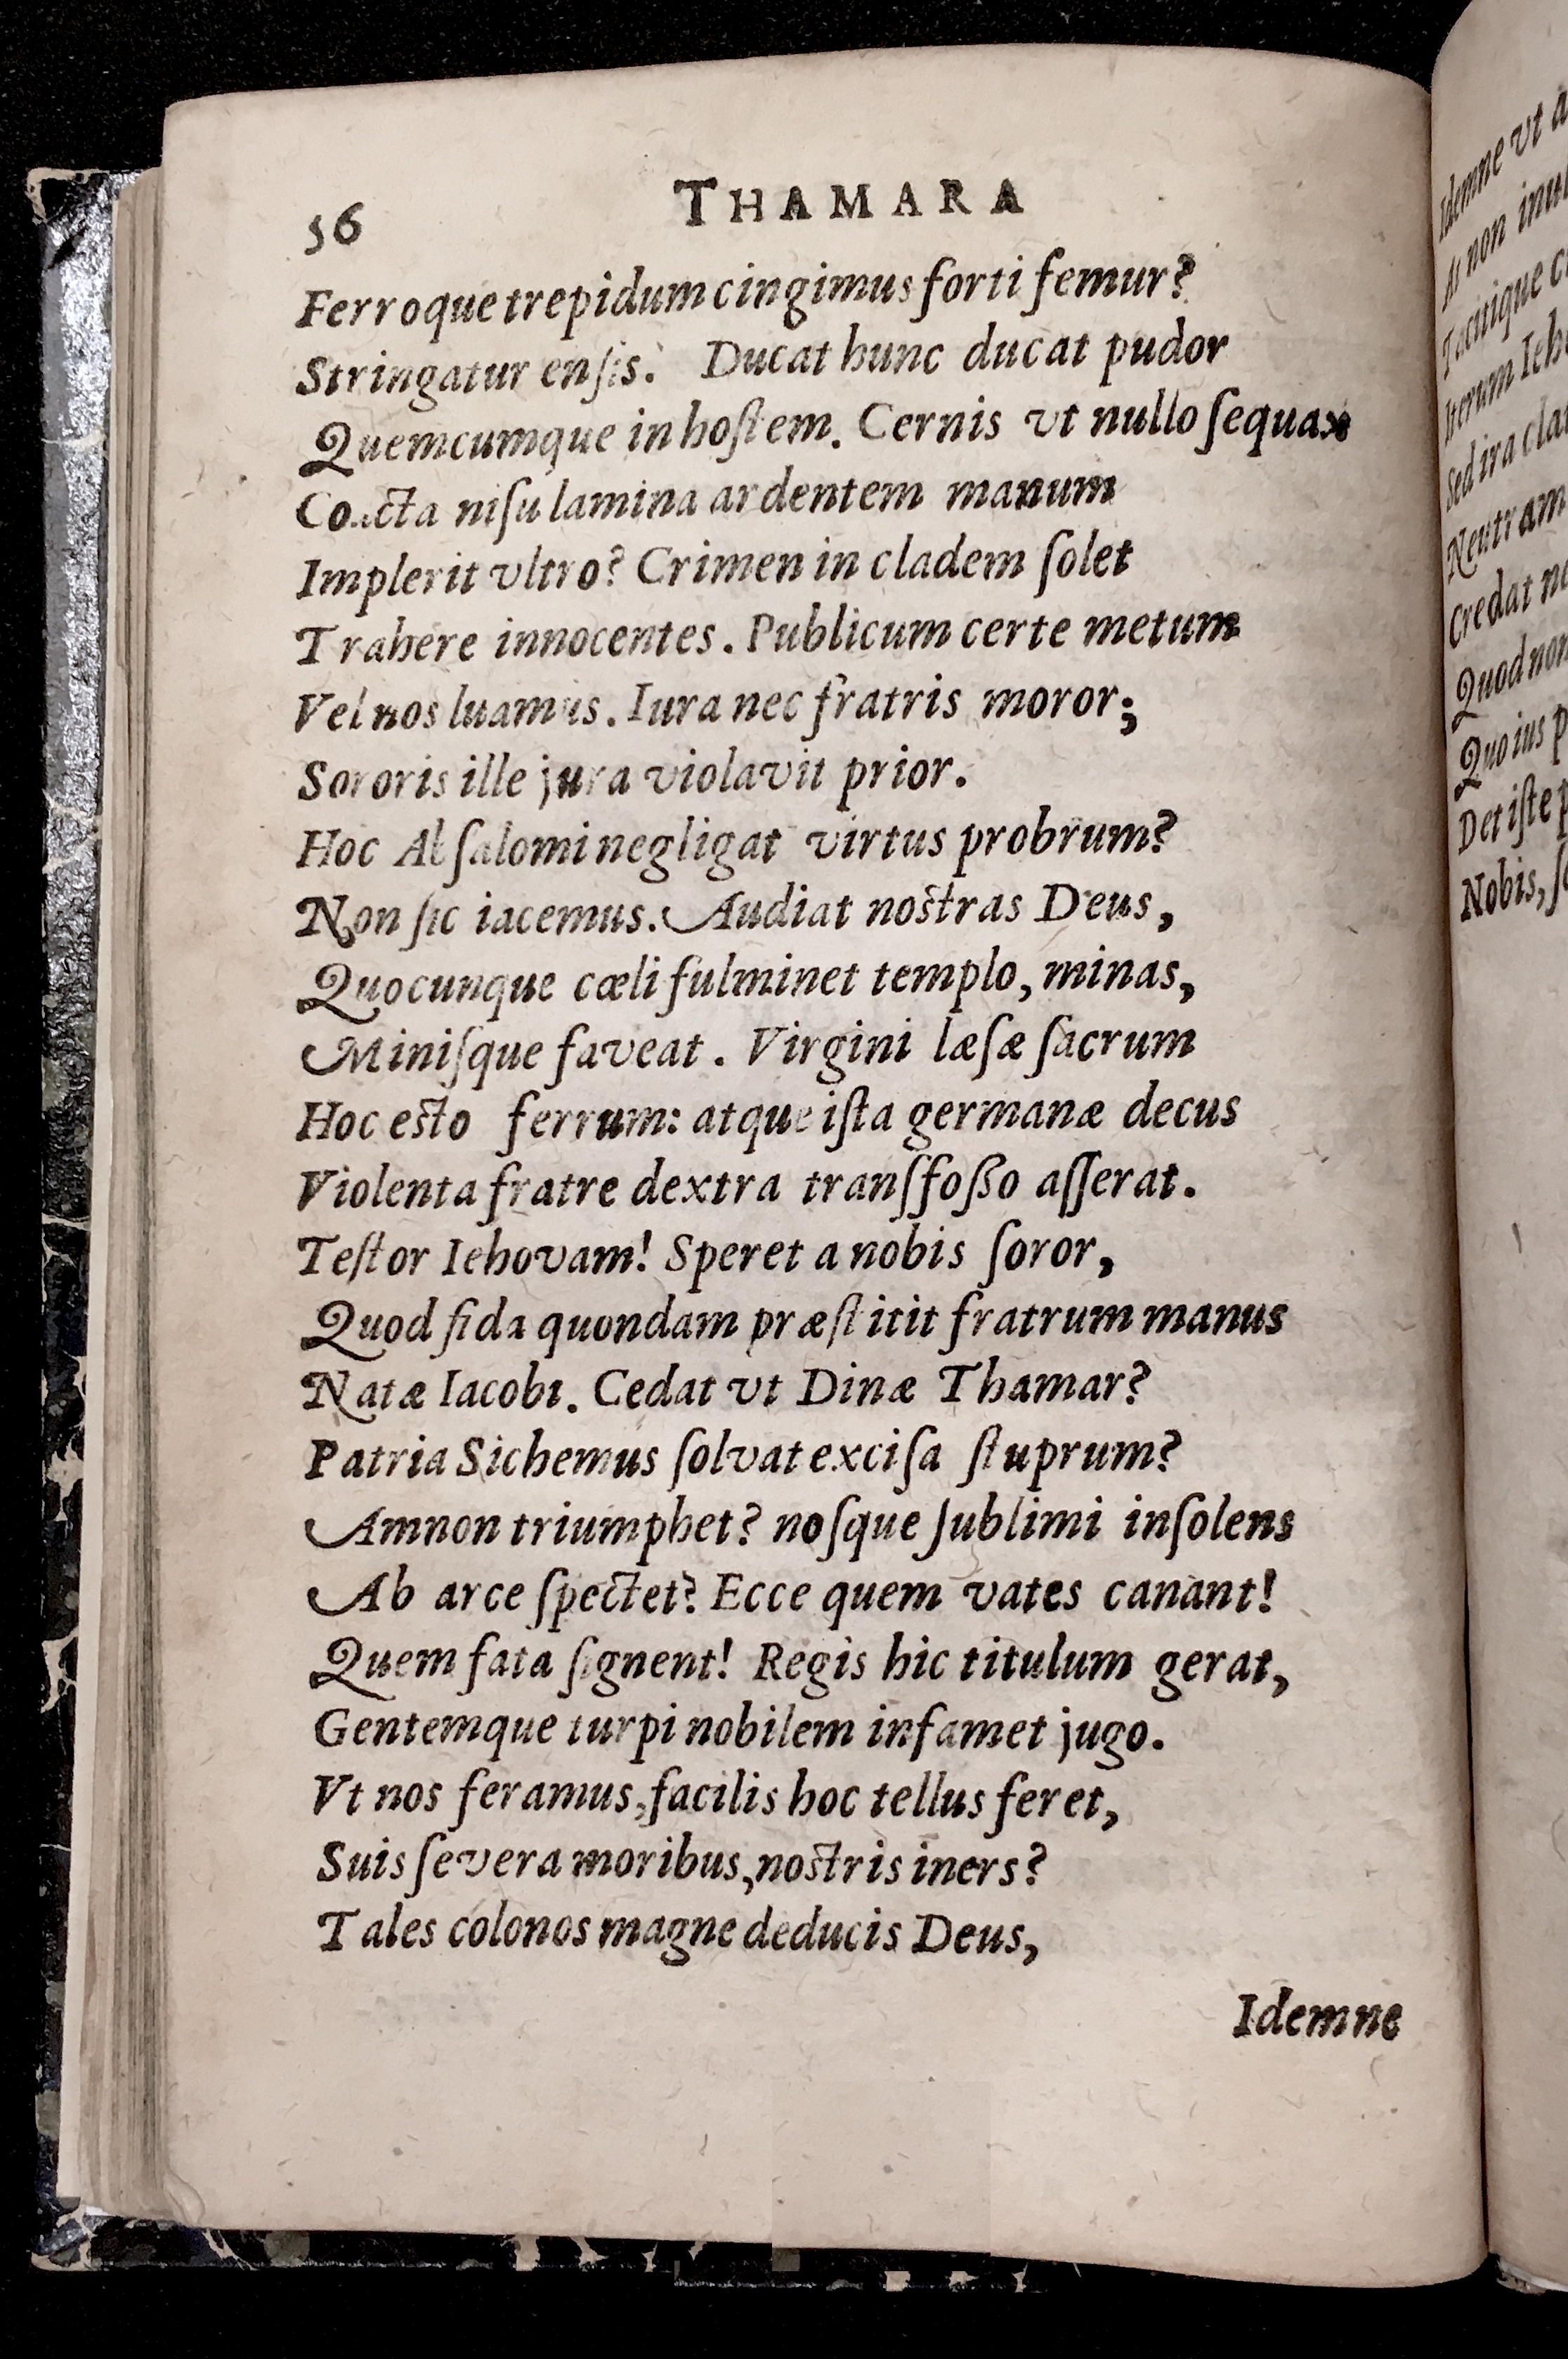 56 THAMARA
Ferroque trepidum cingimus forti femur?
Stringatur enſis. Ducat hunc ducat pudor
Quemcumque in hoſtem. Cernis vt nullo ſequax
Coacta niſu lamina ardentem manum
Implerit vltro? Crimen in cladem ſolet
Trahere innocentes. Publicum certe metum
Vel nos luamus. Iura nec fratris moror;
Sororis ille jura violavit prior.
Hoc Abſalomi negligat virtus probrum?
Non ſic iacemus. Audiat noſtras Deus,
Quocunque cæli fulminet templo, minas,
Miniſque faveat. Virgini læſæ ſacrum
Hoc eſto ferrum: atque iſta germanæ decus
Violenta fratre dextra tranſfoßo aſſerat.
Teſtor Iehovam! Speret a nobis ſoror,
Quod fida quondam præſtitit fratrum manus
Natæ Iacobi. Cedat vt Dinæ Thamar?
Patria Sichemus ſolvat exciſa ſtuprum?
Amnon triumphet? noſque ſublimi inſolens
Ab arce ſpectet? Ecce quem vates canant!
Quem fata ſignent! Regis hic titulum gerat,
Gentemque turpi nobilem infamet jugo.
Vt nos feramus, facilis hoc tellus feret,
Suis ſevera moribus, noſtris iners?
Tales colonos magne deducis Deus,
Idemne
Idemne vt
At non
Tacitique
Iterum
Sed ira
Neutram
Credat
Quod non
Quo ius
Det iſte
Nobis,